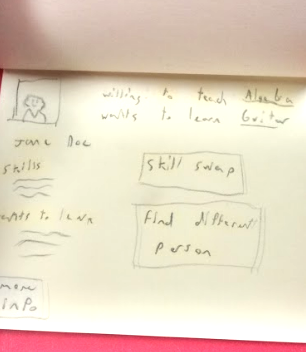 willing to teach Algebra
wants to learn Guitar
Jane Doe
skills
skill swap
wants to learn
find different
person
more
info